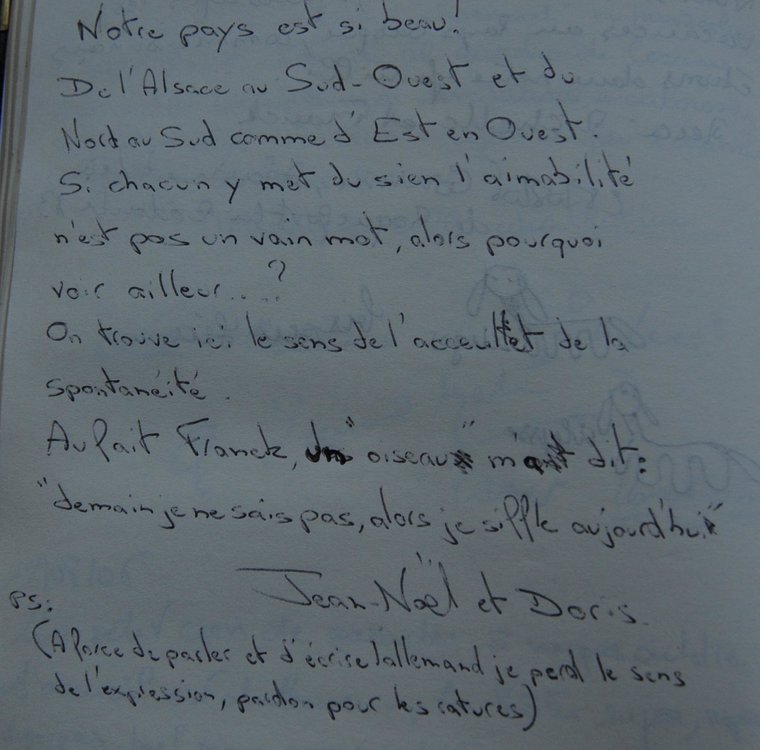 Notre pays est si beau!
De l'Alsace au Sud-Ouest et du
Nord au Sud comme d'Est en Ouest.
Si chacun y met du sien l'aimabilité
n'est pas un vain mot, alors pourquoi
voir ailleur.....?
On trouve ici le sens de l'acceuil et de la
spontanéité.
Au fait Franck, un "oiseau" m'a dit:
"demain je ne sais pas, alors je siffle aujourd'hui"
Jean-Noël et Doris.
PS:
(A force de parler et d'écrire l'allemand je perd le sens
de l'expression, pardon pour les ratures)